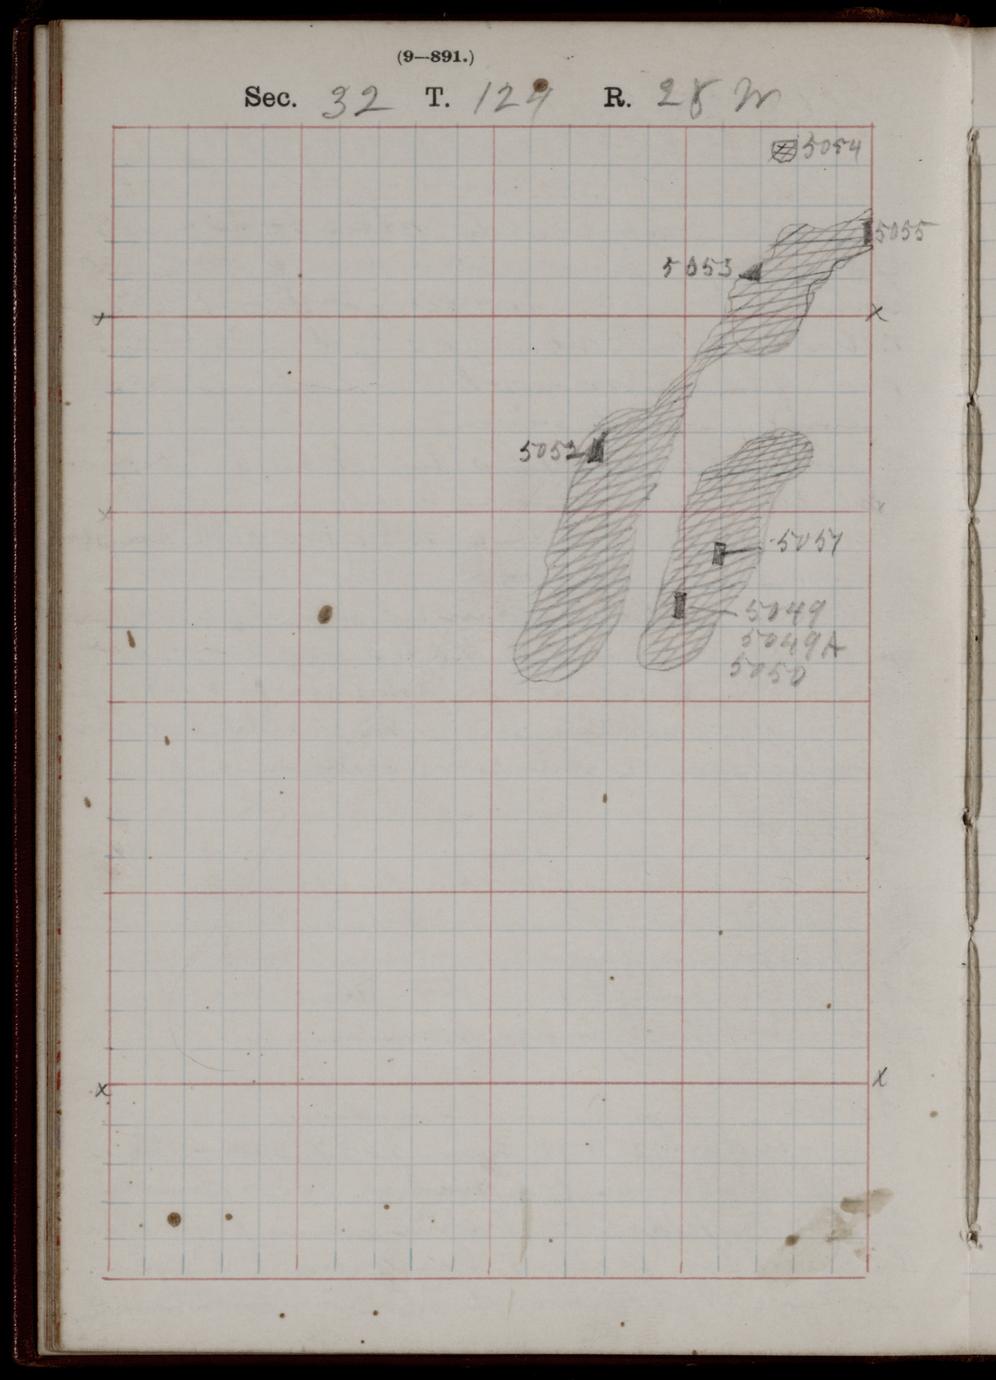 (9—891.)
Sec. 32 T. 124 R. 28 W
5054
5055
5053
x x
5052
x x
5051
5049
5049A
5050
x x